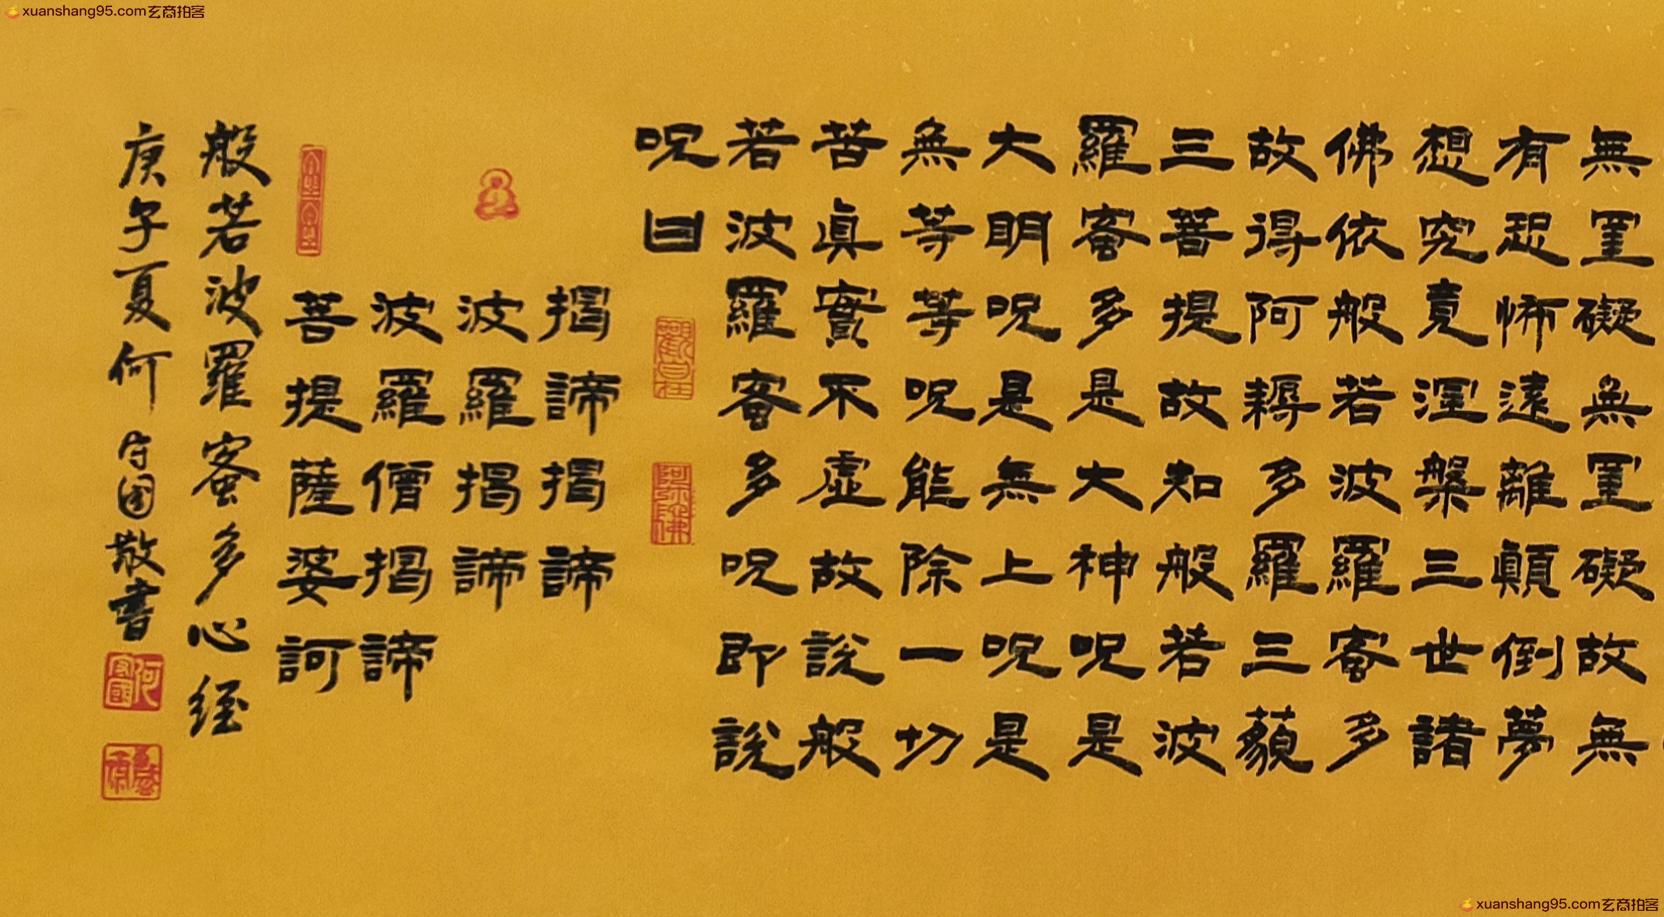 xuanshang95.com玄商拍客
無罣礙無罣礙故無
有恐怖遠離顛倒夢
想究竟涅槃三世諸
佛依般若波羅蜜多
故得阿耨多羅三藐
三菩提故知般若波
羅蜜多是大神呪是
大明呪是無上呪是
無等等呪能除一切
苦真實不虛故說般
若波羅蜜多呪即說
呪曰
揭諦揭諦
波羅揭諦
波羅僧揭諦
菩提薩婆訶
般若波羅蜜多心經
庚子夏何守國敬書
xuanshang95.com玄商拍客